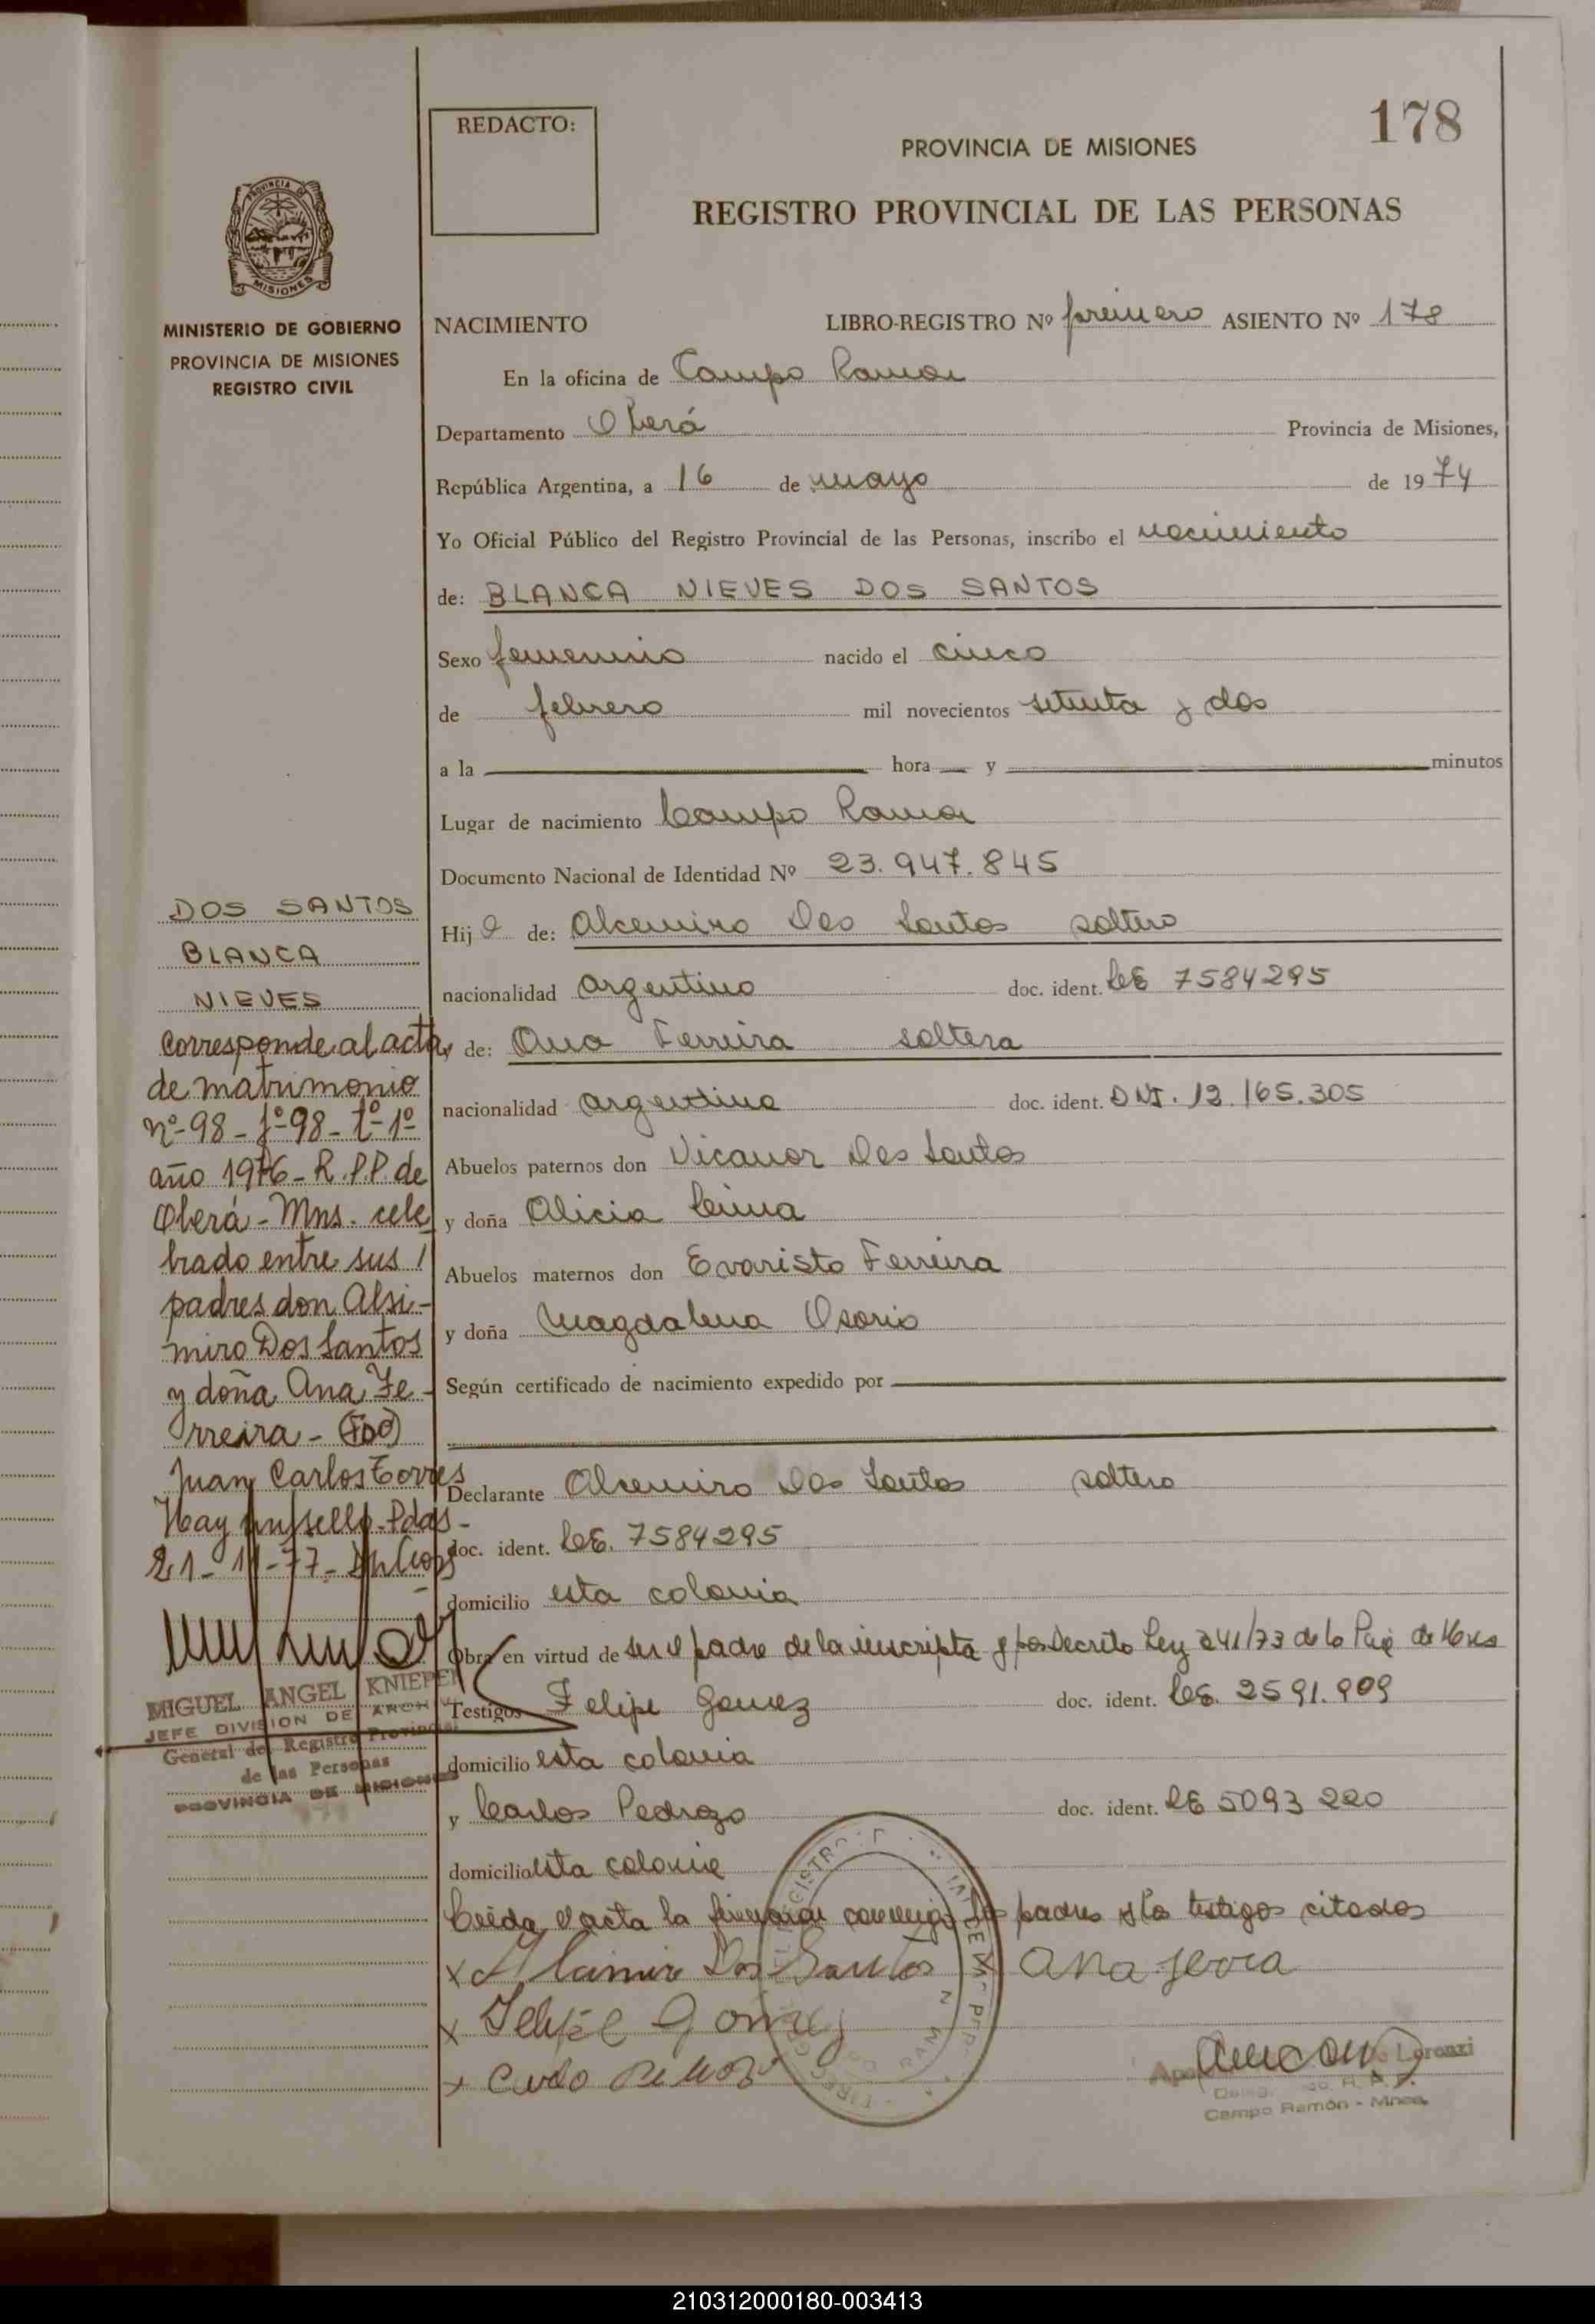 178
REDACTO:
PROVINCIA DE MISIONES
REGISTRO PROVINCIAL DE LAS PERSONAS
PROVINCIA DE
MISIONES
MINISTERIO DE GOBIERNO
PROVINCIA DE MISIONES
REGISTRO CIVIL
NACIMIENTO LIBRO-REGISTRO Nº primero ASIENTO Nº 178
En la oficina de Campo Ramon
Departamento Oberá Provincia de Misiones,
República Argentina, a 16 de mayo de 1974
Yo Oficial Público del Registro Provincial de las Personas, inscribo el nacimiento
de: BLANCA NIEVES DOS SANTOS
Sexo femenino nacido el cinco
de febrero mil novecientos setenta y dos
a la hora y minutos
Lugar de nacimiento Campo Ramon
Documento Nacional de Identidad Nº 23.947.845
Hija de: Alcemiro Dos Santos soltero
nacionalidad argentino doc. ident. LE 7584295
y de: Ana Ferreira soltera
nacionalidad argentina doc. ident. DNI. 12.165.305
Abuelos paternos don Nicanor Dos Santos
y doña Alicia Lima
Abuelos maternos don Evaristo Ferreira
y doña Magdalena Osorio
Según certificado de nacimiento expedido por
Declarante Alcemiro Dos Santos soltero
doc. ident. LE. 7584295
domicilio esta colonia
Obra en virtud de ser el padre de la inscripta y por Decreto Ley 241/73 de la
Testigos Felipe Gomez doc. ident. LE. 2591.909
domicilio esta colonia
y Carlos Pedrozo doc. ident. LE 5093220
domicilio esta colonia
Leida el acta la firmaron conmigo los padres y los testigos citados
x Dos Santos Ana
x Felipe Gomez
x
Lorenzi
Campo Ramón - Mnes.
DOS SANTOS
BLANCA
NIEVES
Corresponde al acta
de matrimonio
nº-98-fº-98-tº-1º
año 1976-R.P.P. de
Oberá-Mns. cele
brado entre sus
padres don Alsi-
miro Dos Santos
y doña Ana Fe-
rreira-(Fdo)
Juan Carlos Torres
Hay un sello-Pdas-
21-11-77-
MIGUEL ANGEL KNIEPER
JEFE DIVISION DE ARCHIVO
General del Registro Provincial
de las Personas
PROVINCIA DE MISIONES
210312000180-003413